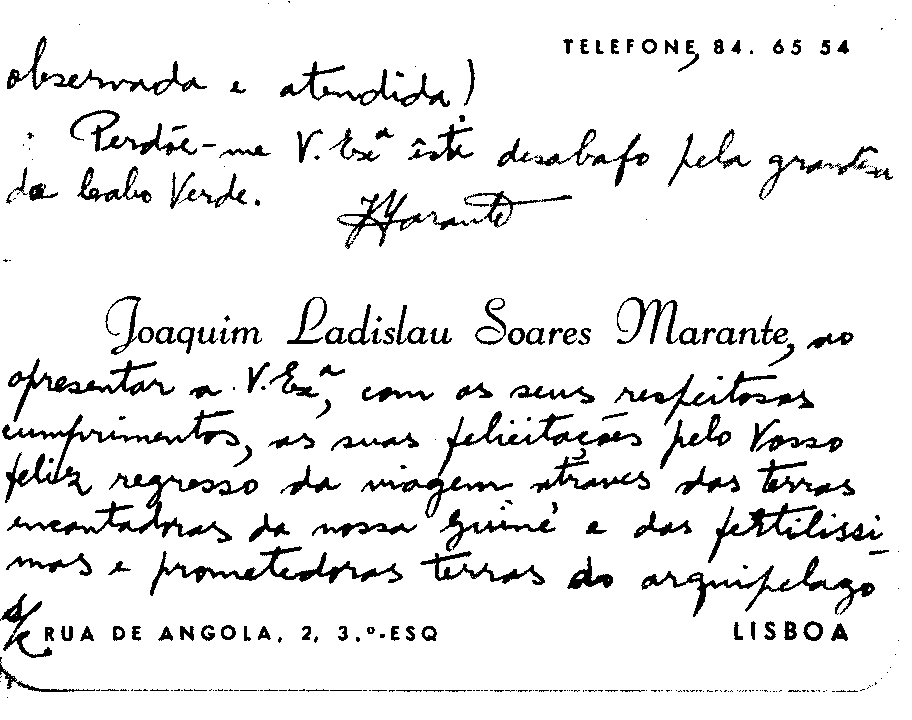 TELEFONE, 84. 65 54
observada e atendida!
Perdôe-me V. Exª êste desabafo pela grandêsa
de Cabo Verde.
JMarante
Joaquim Ladislau Soares Marante, ao
apresentar a V. Exª, com os seus respeitosos
cumprimentos, as suas felicitações pelo Vosso
feliz regresso da viagem atraves das terras
encantadoras da nossa Guiné e das fertilissi-
mas e prometedoras terras do arquipelago
RUA DE ANGOLA, 2, 3.º-ESQ
LISBOA